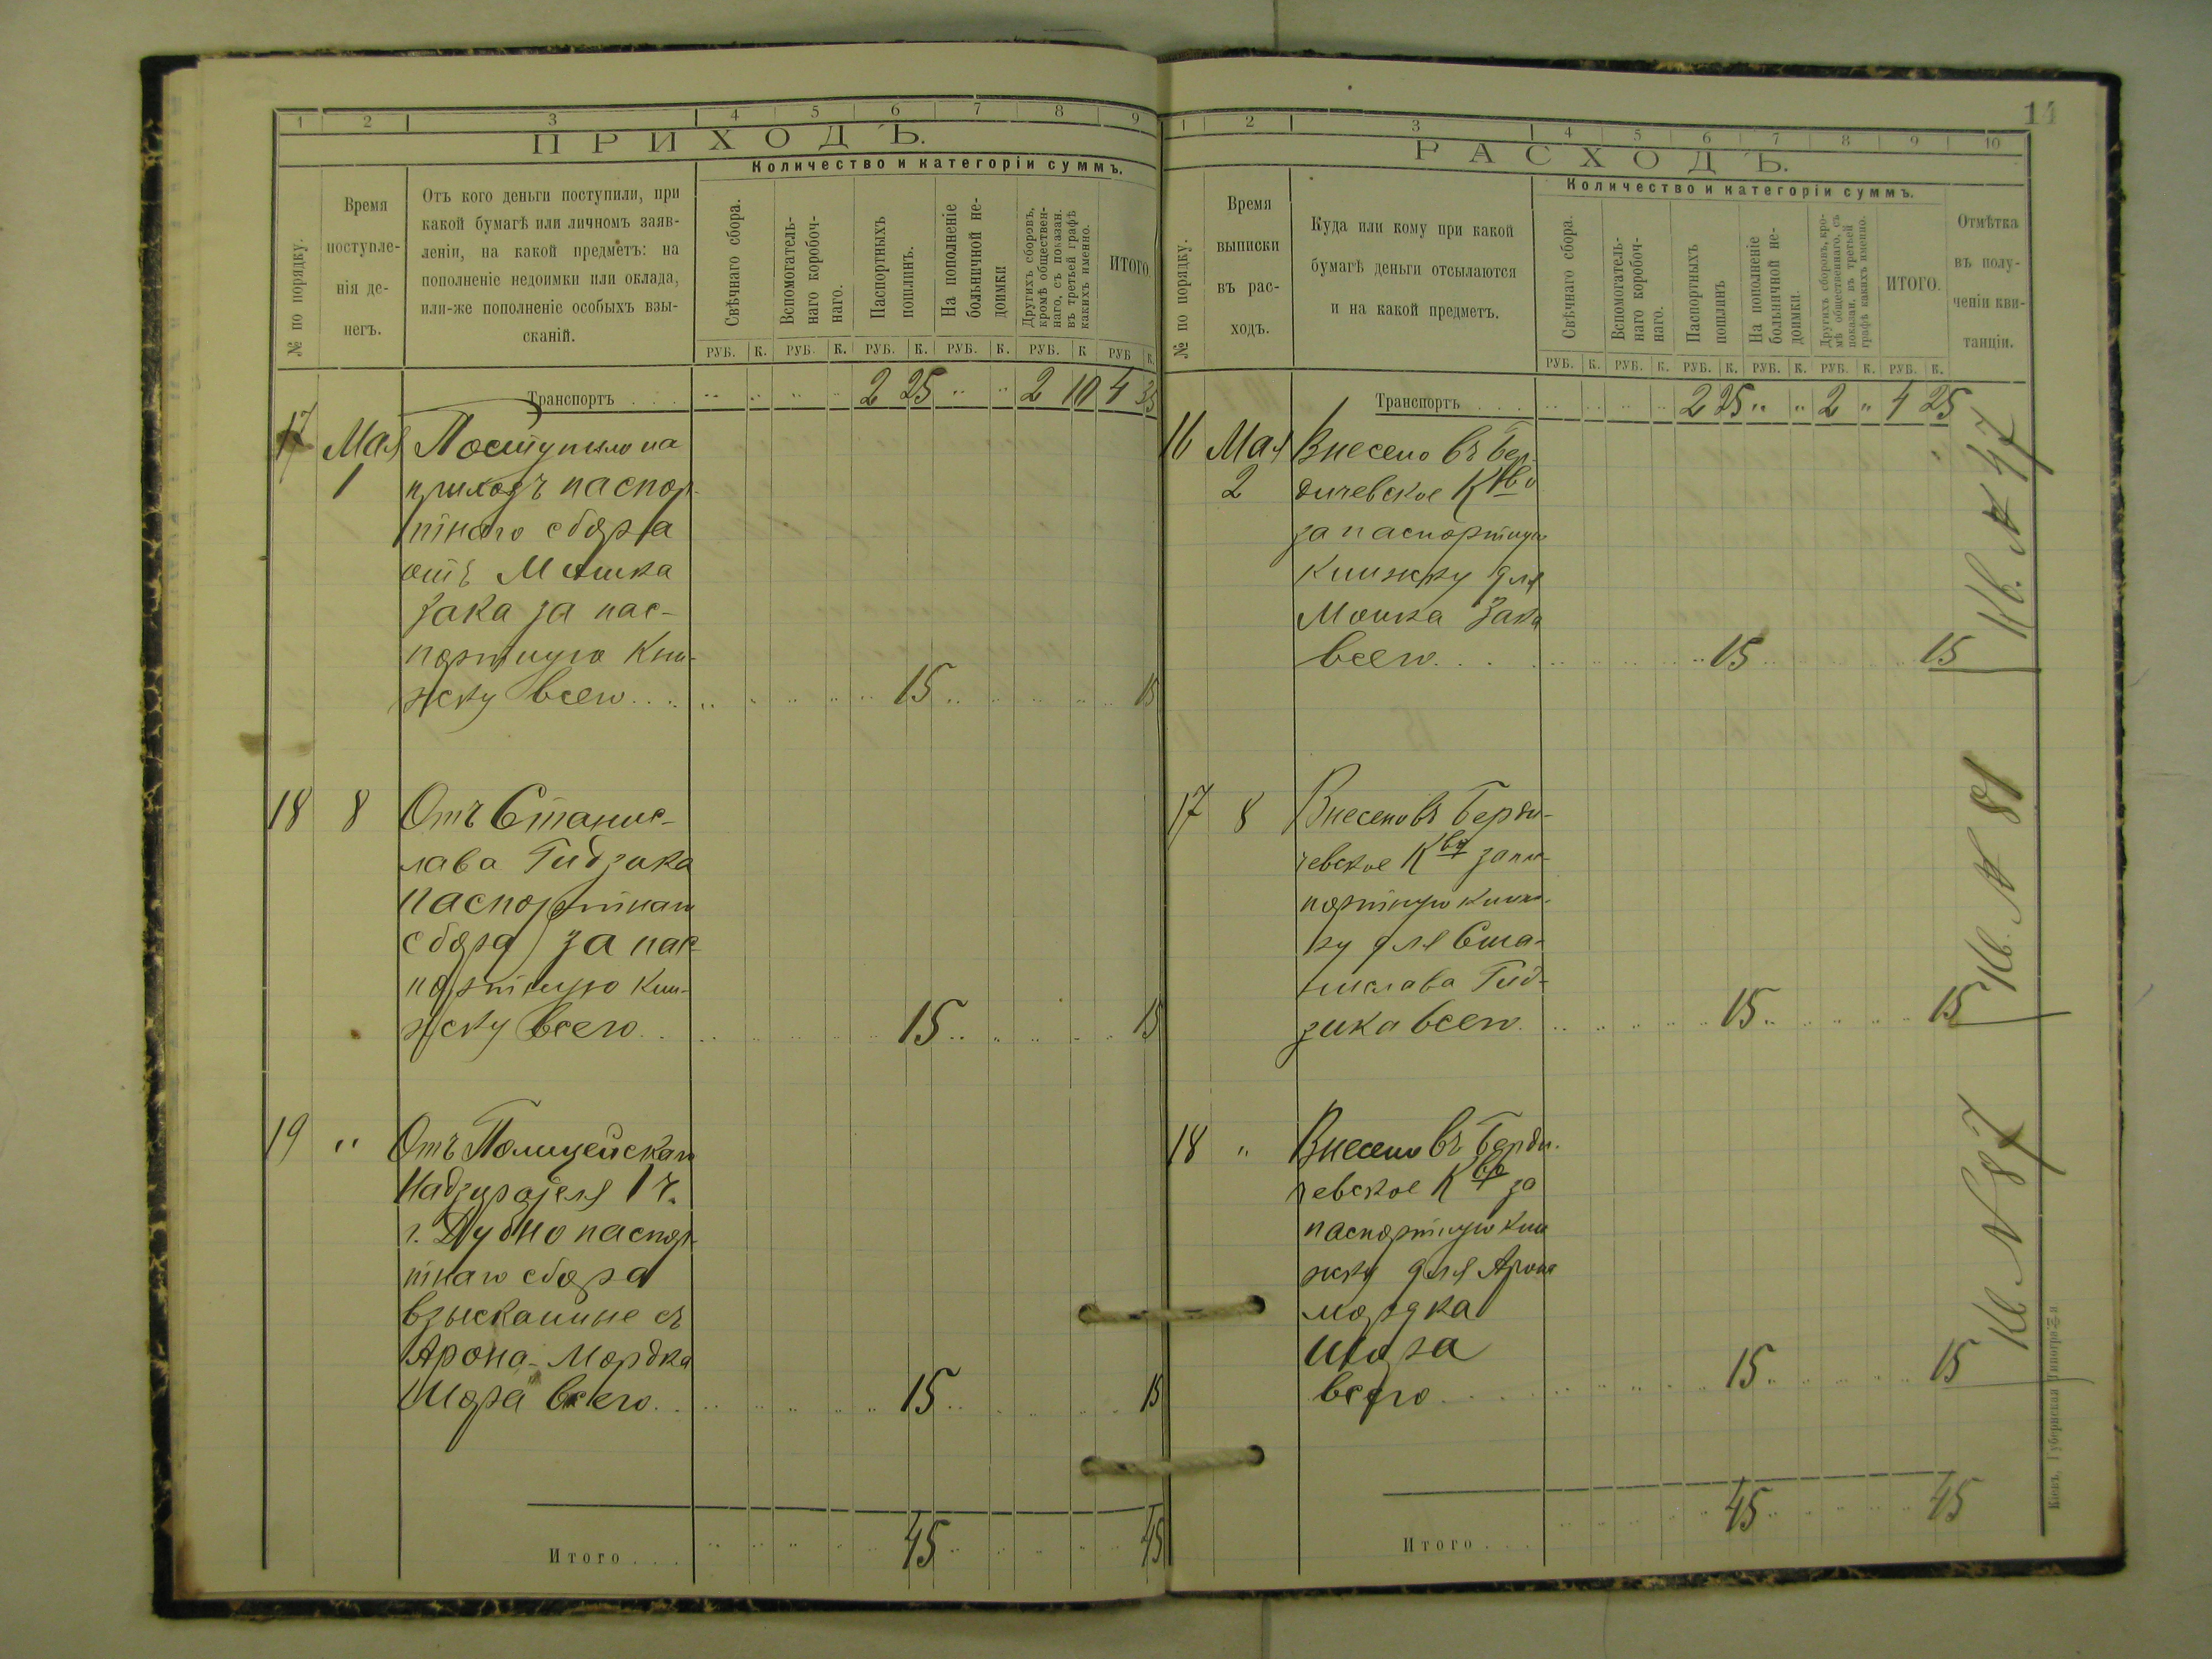 14
1 2 3 4 5 6 7 8 9
ПРИХОДЪ.
Количество и категоріи суммъ.
№ по порядку.
Время
поступле-
нія де-
негъ.
Отъ кого деньги поступили, при
какой бумагѣ или личномъ заяв-
леніи, на какой предметъ: на
пополненіе недоимки или оклада,
или-же пополненіе особыхъ взы-
сканій.
Свѣчнаго сбора.
Вспомогатель-
наго коробоч-
наго.
Паспортныхъ
пошлинъ.
На пополненіе
больничной не-
доимки
Другихъ сборовъ,
кромѣ обществен-
наго, съ показан.
въ третьей графѣ
какихъ именно.
ИТОГО.
РУБ. К. РУБ. К. РУБ. К. РУБ. К. РУБ. К РУБ К.
Транспортъ . . . 2 25 2 10 4 35
17 Мая Поступило на
1 приходъ паспор-
тнаго сбора
отъ Мошка
Зака за пас-
портную кни-
жку всего . . . 15 15
18 8 Отъ Станис-
лава Гидзика
паспортнаго
сбора за пас-
портную кни-
жку всего . . 15 15
19 " Отъ Полицейскаго
Надзирателя 1 ч.
г. Дубно паспор-
тнаго сбора
взысканные съ
Арона-Мордка
Шора всего . . 15 15
Итого . . . 45 45
1 2 3 4 5 6 7 8 9 10
РАСХОДЪ.
Количество и категоріи суммъ.
№ по порядку.
Время
выписки
въ рас-
ходъ.
Куда или кому при какой
бумагѣ деньги отсылаются
и на какой предметъ.
Свѣчнаго сбора.
Вспомогатель-
наго коробоч-
наго.
Паспортныхъ
пошлинъ
На пополненіе
больничной не-
доимки.
Другихъ сборовъ, кро-
мѣ общественнаго, съ
показан. въ третьей
графѣ какихъ именно.
ИТОГО.
Отмѣтка
въ полу-
ченіи кви-
танціи.
РУБ. К. РУБ. К. РУБ. К. РУБ. К. РУБ. К. РУБ. К.
Транспортъ . . . 2 25 " " 2 " 4 25
16 Мая Внесено въ Бер-
2 дичевское К-во
за паспортную
книжку для
Мошка Зака
всего . . . 15 15
Кв. № 47
17 8 Внесено въ Берди-
чевское К-во за пас-
портную книж-
ку для Ста-
нислава Гид-
зика всего . 15 15
Кв. № 81
18 " Внесено въ Берди-
чевское К-во за
паспортную кни
жку для Арона
Мордка
Шора
всего . . . 15 15
Кв. № 87
Итого . . . 45 45
Кіевъ, Губернская Типографія